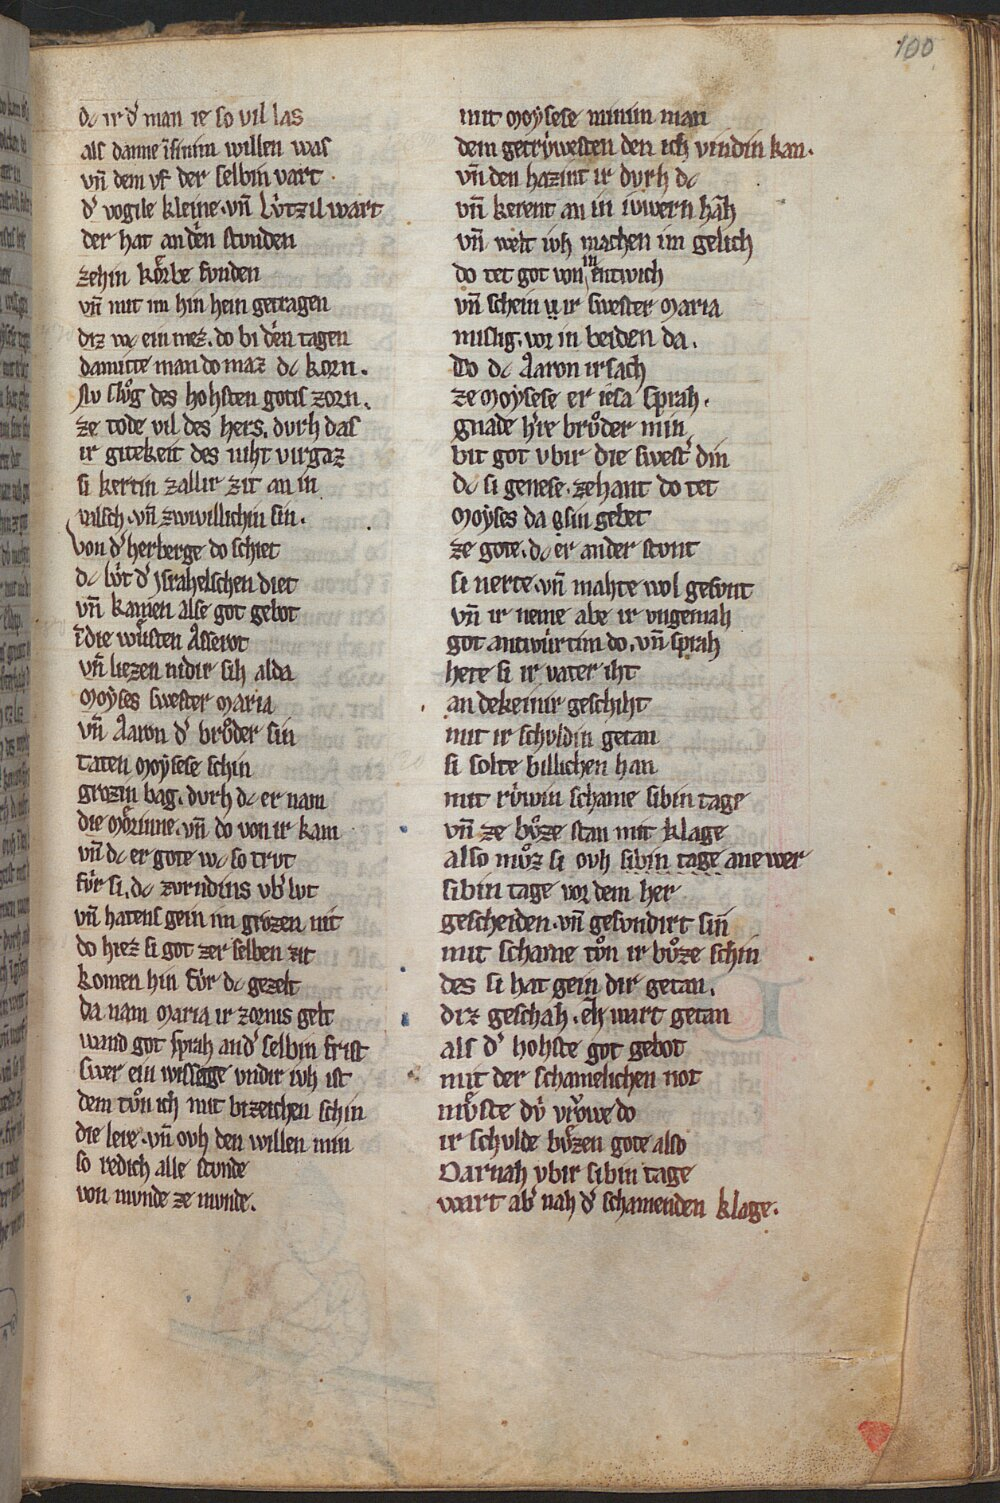 100
dc ir dˀ man ie so vil las
als danne ī sinim willen was
vn̄ dem vf der selbin vart
dˀ vogile kleine · vn̄ lv́tzil wart
der hat an dèn stvnden
zehin kôrbe fvnden
vn̄ mit im hin hein getragen
diz wc ein mez. do bi dèn tagen
damitte man do maz dc korn.
Nv slvͦg des hohsten gotis zorn.
ze tode vil des hers. dvrh das
ir gitekeit des niht virgaz
si kertin zallir zit an in
valsch · vn̄ zwivillichin sin.
Von dˀ herberge do schiet
dc lv́t dˀ Jsrahelschen diet
vn̄ kamen alse got gebot
ī die wuͤsten Asserot
vn̄ liezen nidir sih alda
Moyses swester Maria
vn̄ Aaron dˀ brvͦder sin
taten Moysese schin
grozin bag. dvrh dc er nam
die Moͤrinne · vn̄ do von ir kam
vn̄ dc er gote wc so trvt
fv́r si. dc zvrndins vbˀ lvt
vn̄ hatens gein im grozen nit
do hiez si got zer selben zit
komen hin fv́r dc gezelt
da nam Maria ir zornis gelt
wand got sprah an dˀ selbin frist
swer ein wissage vndir ivh ist
dem tvͦn ich mit bizeichen schin
die lere · vn̄ ovh den willen min
so redich alle stvnde
von mvnde ze mvnde.
mit Moysese minim man
dem getrv́westen den ich vindin kan.
vn̄ den hazint ir dvrh dc
vn̄ kerent an in iuwern haz̄
vn̄ welt ivh machen im gelich
do tet got von in entwich
vn̄ schein v ir swester Maria
mislig. vor in beiden da.
Do dc Aaron irsach
ze Moysese er iesa sprah.
gnade hˀre brvͦder min
bit got vbir die swestˀ din
dc si genese. zehant do tet
Moyses da sin gebet
ze gote. dc er an der stvnt
si nerte · vn̄ mahte wol gesvnt
vn̄ ir neme abe ir vngemah
got antwúrtim do. vn̄ sprah
hete si ir vater iht
an dekeinir geschiht
mit ir schvldin getan
si solte billichen han
mit rv́win schame sibin tage
vn̄ ze bvͦze stan mit klage
also mvͦz si ovh sibin tage ane wer
sibin tage vor dem her
gescheiden. vn̄ gesvndirt sin̄
mit schame tvͦn ir bvͦze schin
des si hat gein dir getan.
diz geschah. eh̄ wart getan
als dˀ hohste got gebot
mit der schamelichen not
mvͦste dv́ vrowe do
ir schvlde bvͤzen gote also
Darnah vbir sibin tage
wart abˀ nah dˀ schamenden klage.